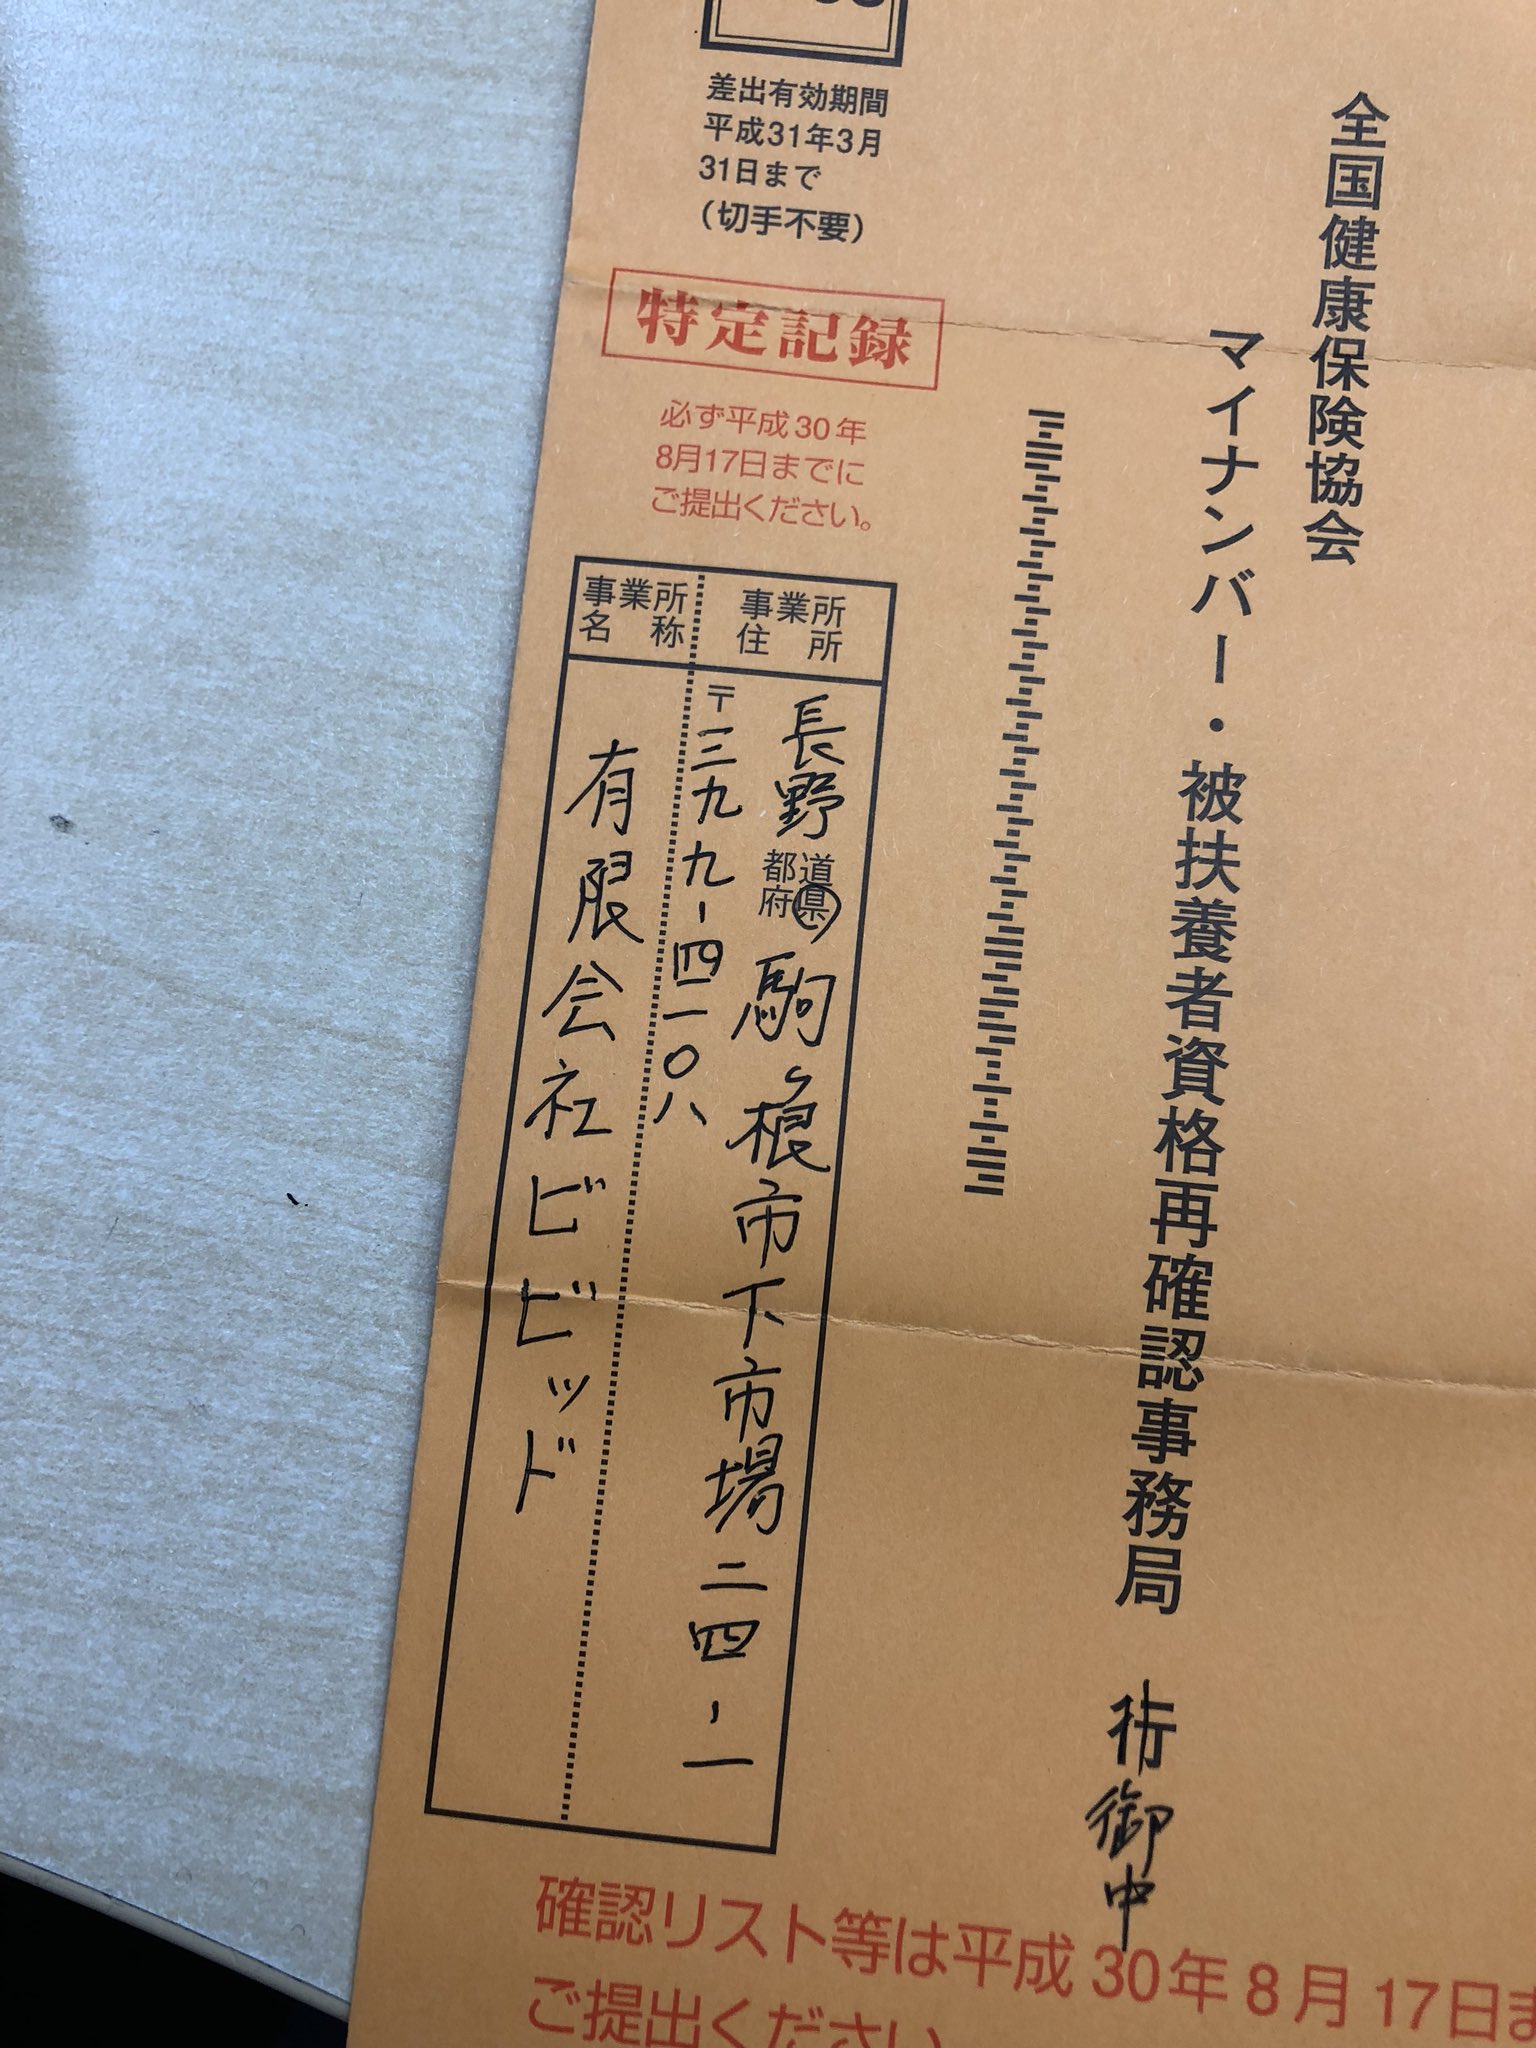 差出有効期間
平成31年3月
31日まで
(切手不要)
特定記録
必ず平成30年
8月17日までに
ご提出ください。
全国健康保険協会
マイナンバー・被扶養者資格再確認事務局 行 御中
事業所住所
長野 都道府県 駒ヶ根市下市場二四-一
〒三九九-四一〇八
事業所名称
有限会社ビビッド
確認リスト等は平成30年8月17日ま
ご提出ください